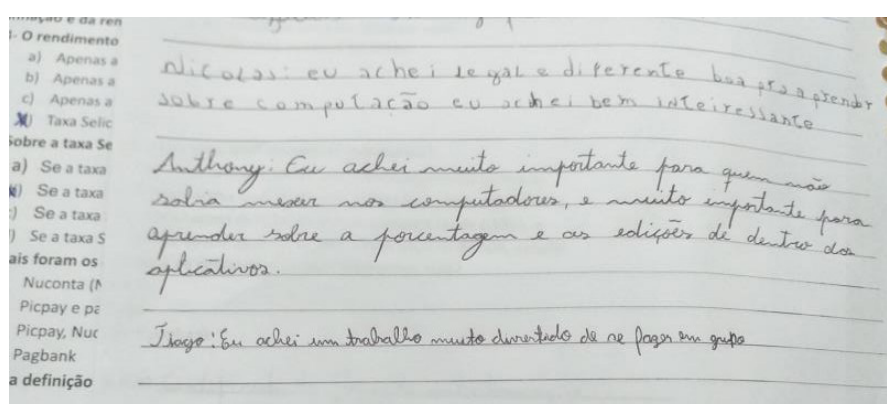 e da ren
- O rendimento
a) Apenas a
b) Apenas a
c) Apenas a
Taxa Selic
Sobre a taxa Se
a) Se a taxa
Se a taxa
) Se a taxa
) Se a taxa S
ais foram os
Nuconta (N
Picpay e pa
Picpay, Nuc
Pagbank
a definição
Nicolas: eu achei legal e diferente boa pra aprender
sobre computação eu achei bem inteiressante
Anthony: Eu achei muito importante para quem não
sabia mexer nos computadores, e muito importante para
aprender sobre a porcentagem e as edições de dentro dos
aplicativos.
Tiago: Eu achei um trabalho muito divertido de se fazer em grupo